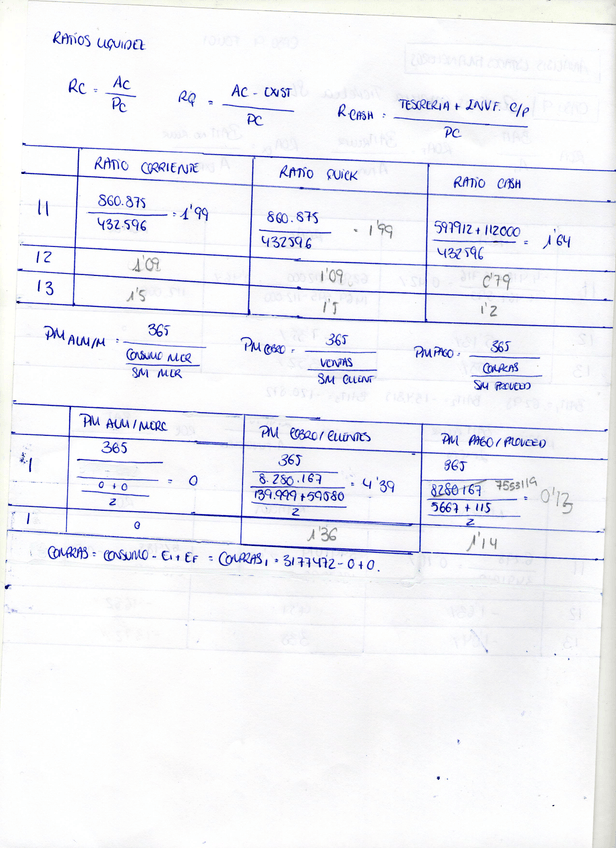 RATIOS LIQUIDEZ
RC = AC / PC   RQ = AC - EXIST / PC   R CASH = TESORERIA + INVF. C/P / PC
RATIO CORRIENTE   RATIO QUICK   RATIO CASH
11   860.875 / 432.596 = 1'99   860.875 / 432596 = 1'99   597912 + 112000 / 432596 = 1'64
12   1'09   1'09   0'79
13   1'5   1'5   1'2
PM ALM/M = 365 / CONSUMO MER / SM MER   PM COBRO = 365 / VENTAS / SM CLIENT   PM PAGO = 365 / COMPRAS / SM PROVEED
PM ALM/MERC   PM COBRO/CLIENTES   PM PAGO/PROVEED
1   365 / 0 + 0 / 2 = 0   365 / 8.280.167 / 139.999 + 59580 / 2 = 4'39   365 / 8280167 7553119 / 5667 + 115 / 2 = 0'13
1   0   1'36   1'14
COMPRAS = CONSUMO - Ei + EF = COMPRAS1 = 3177472 - 0 + 0.